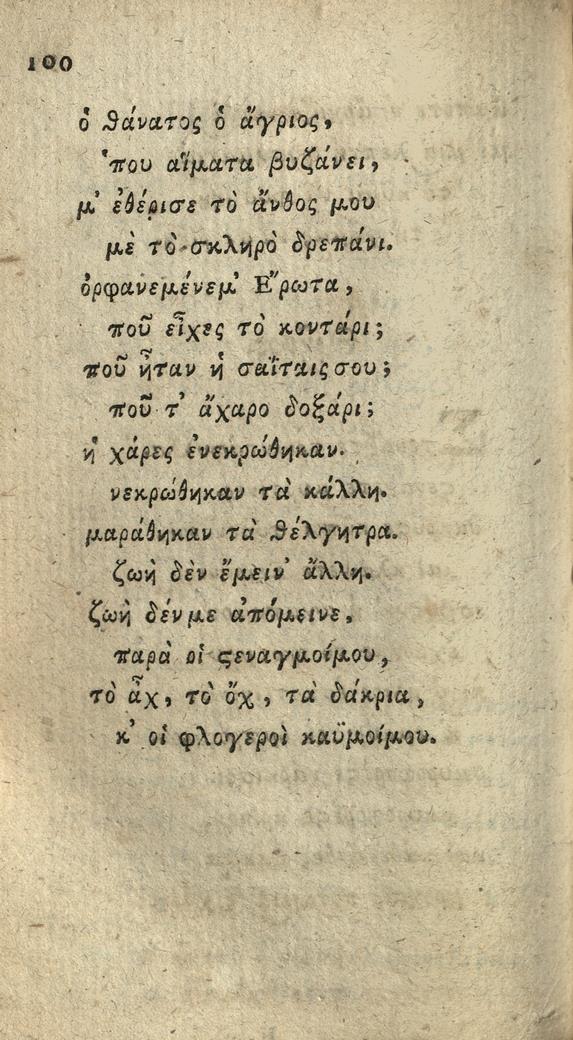 100
ὁ θάνατος ὁ ἄγριος,
'που αἵματα βυζάνει,
μ' ἐθέρισε τὸ ἄνθος μου
μὲ τὸ σκληρὸ δρεπάνι.
ὀρφανεμένεμ' Ἔρωτα,
ποῦ εἶχες τὸ κοντάρι;
ποῦ ἦταν ἡ σαΐταις σου;
ποῦ τ' ἄχαρο δοξάρι;
ἡ χάρες ἐνεκρώθηκαν.
νεκρώθηκαν τὰ κάλλη.
μαράθηκαν τὰ θέλγητρα.
ζωὴ δὲν ἔμειν' ἄλλη.
ζωὴ δένμε ἀπόμεινε,
παρὰ οἱ ϛεναγμοίμου,
τὸ ἂχ, τὸ ὄχ, τὰ δάκρια,
κ' οἱ φλογεροὶ καϋμοίμου.